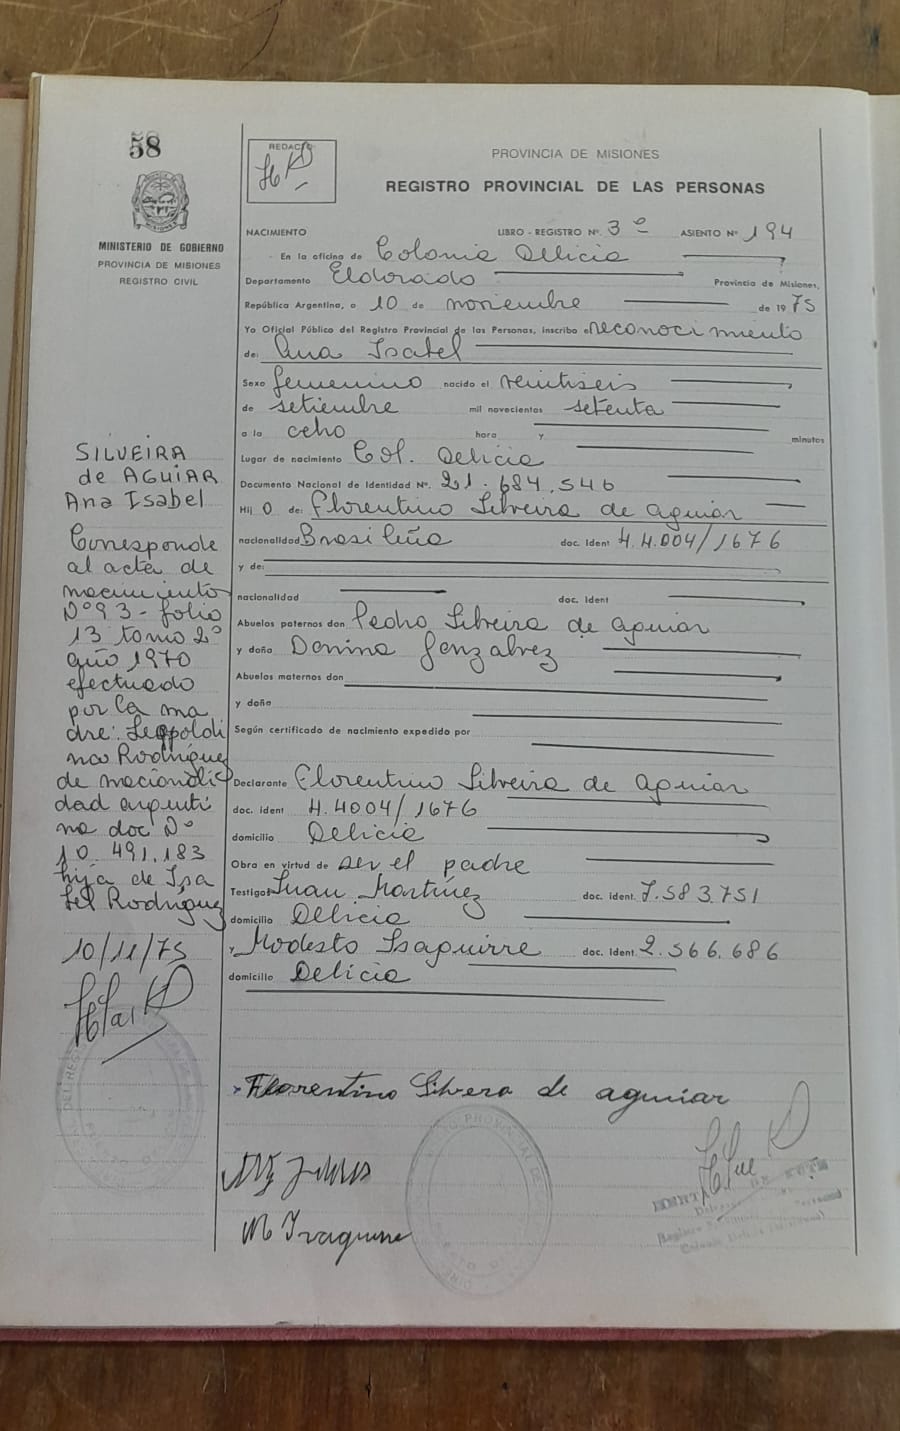 58
MINISTERIO DE GOBIERNO
PROVINCIA DE MISIONES
REGISTRO CIVIL
SILVEIRA
de AGUIAR
Ana Isabel
Corresponde
al acta de
nacimiento
Nº 93 - folio
13 tomo 2º
año 1970
efectuado
por la ma
dre: Leopoldi
na Rodríguez
de nacionali
dad argenti
na doc Nº
10.491.183
hija de Isa
bel Rodriguez
10/11/75
REDACTO
PROVINCIA DE MISIONES
REGISTRO PROVINCIAL DE LAS PERSONAS
NACIMIENTO LIBRO - REGISTRO Nº. 3º ASIENTO Nº 194
En la oficina de Colonia Delicia
Departamento Eldorado Provincia de Misiones,
República Argentina, a 10 de noviembre de 1975
Yo Oficial Público del Registro Provincial de las Personas, inscribo el reconocimiento
de: Ana Isabel
Sexo femenino nacido el veintiseis
de setiembre mil novecientos setenta
a la ocho hora y minutos
Lugar de nacimiento Col. Delicia
Documento Nacional de Identidad Nº. 21.684.546
Hijo de: Florentino Silveira de aguiar
nacionalidad Brasileña doc. Ident 4.4.004/1676
y de:
nacionalidad doc. Ident
Abuelos paternos don Pedro Silveira de aguiar
y doña Donina Gonzalvez
Abuelos maternos don
y doña
Según certificado de nacimiento expedido por
Declarante Florentino Silveira de aguiar
doc. ident 4.4004/1676
domicilio Delicia
Obra en virtud de ser el padre
Testigos Juan Martínez doc. ident. 7.583.751
domicilio Delicia
y Modesto Isaguirre doc. ident 2.566.686
domicilio Delicia
Florentino Silvera de aguiar
M Izaguirre